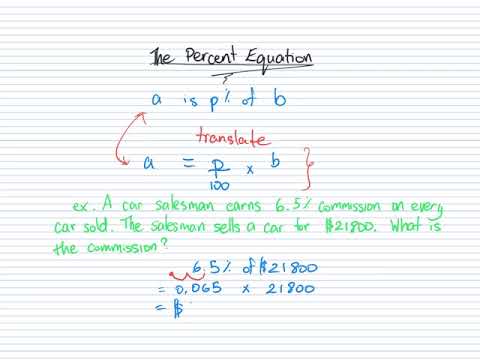 The Percent Equation
a is p% of b
translate
a = p/100 x b
ex. A car salesman earns 6.5% commission on every
car sold. The salesman sells a car for $21800. What is
the commission?
6.5% of $21800
= 0.065 x 21800
= $